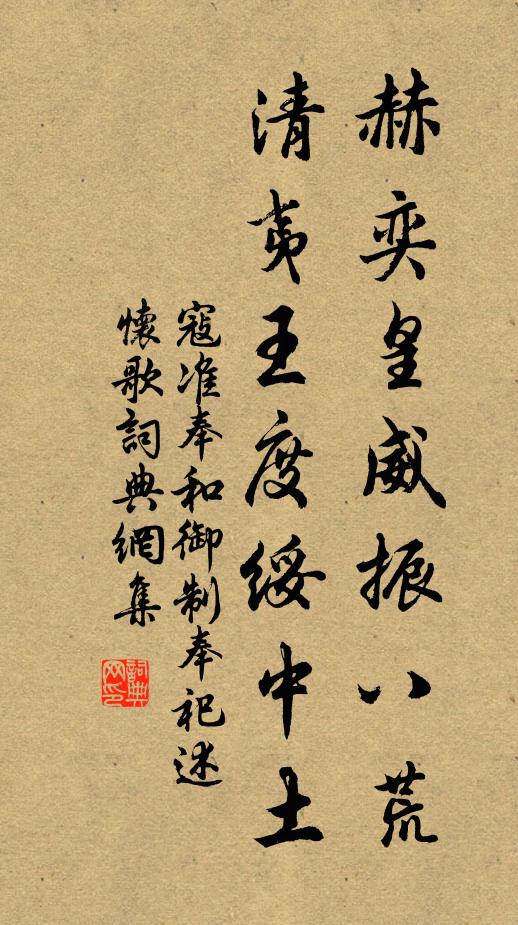 赫奕皇威振八荒
清夷王度綏中土
寇准奉和御制奉祀述
懷歌詞典網集
詞典网印